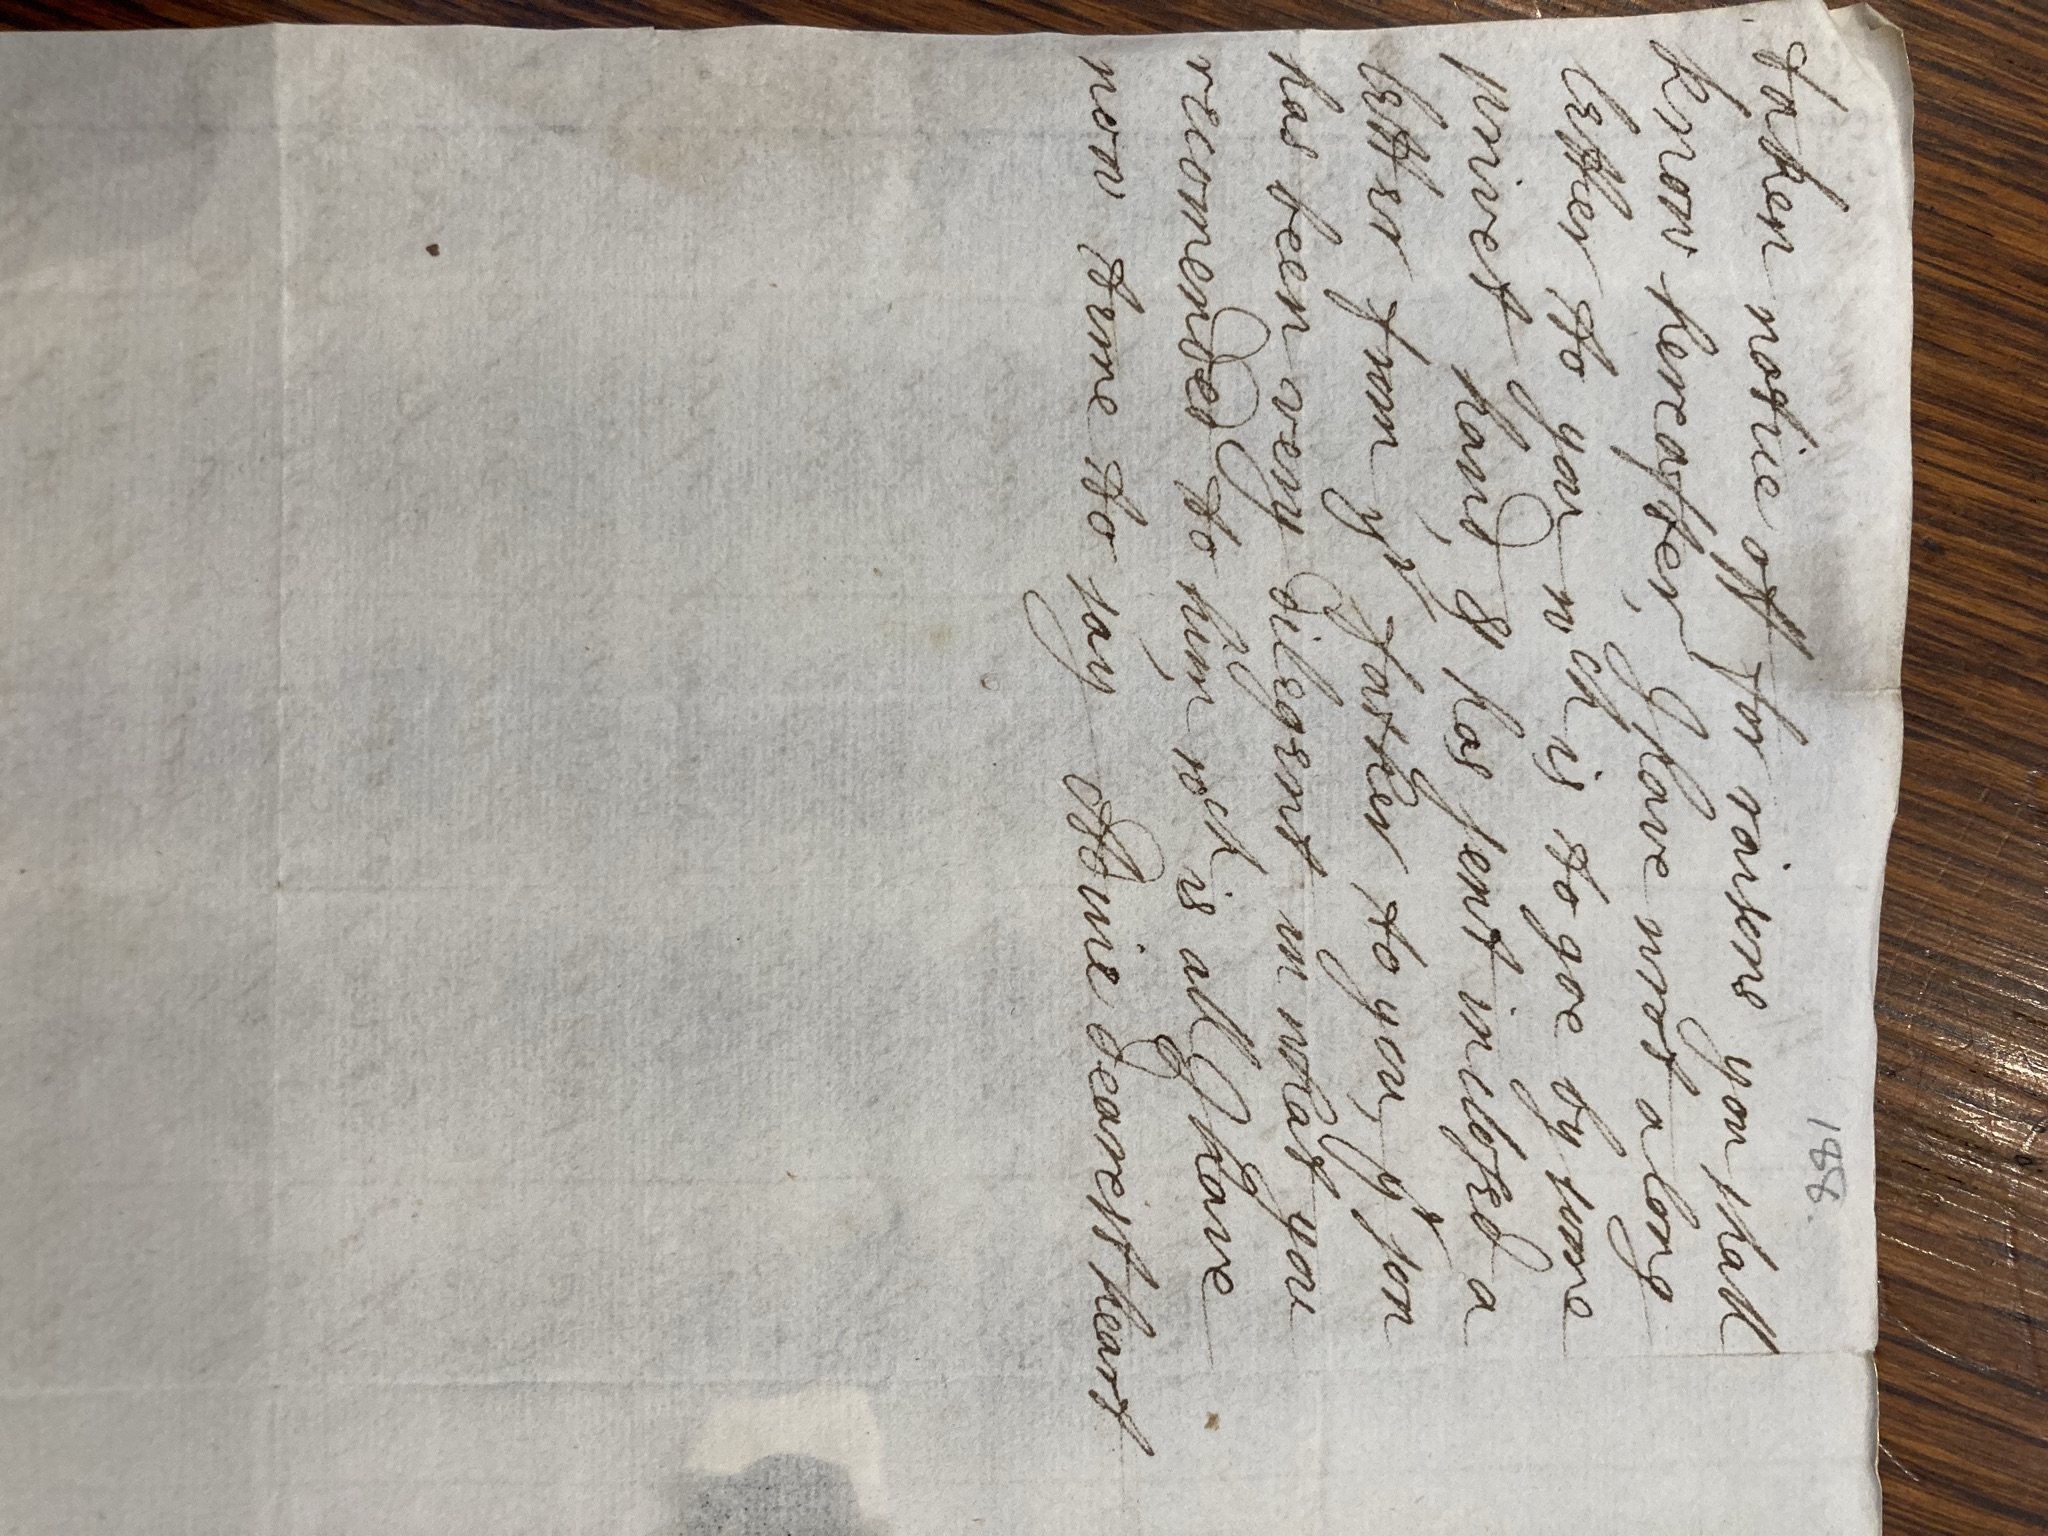 188.
taken notice off for raisons you shall
know hereafter, I have wrot a long
letter to you wch is to goe by some
privet hand, & has sent inclosed a
letter from yr father to you, yr son
has been very dilegent in what you
recomended to him, wch is all I have
now time to say Adieu dearest heart